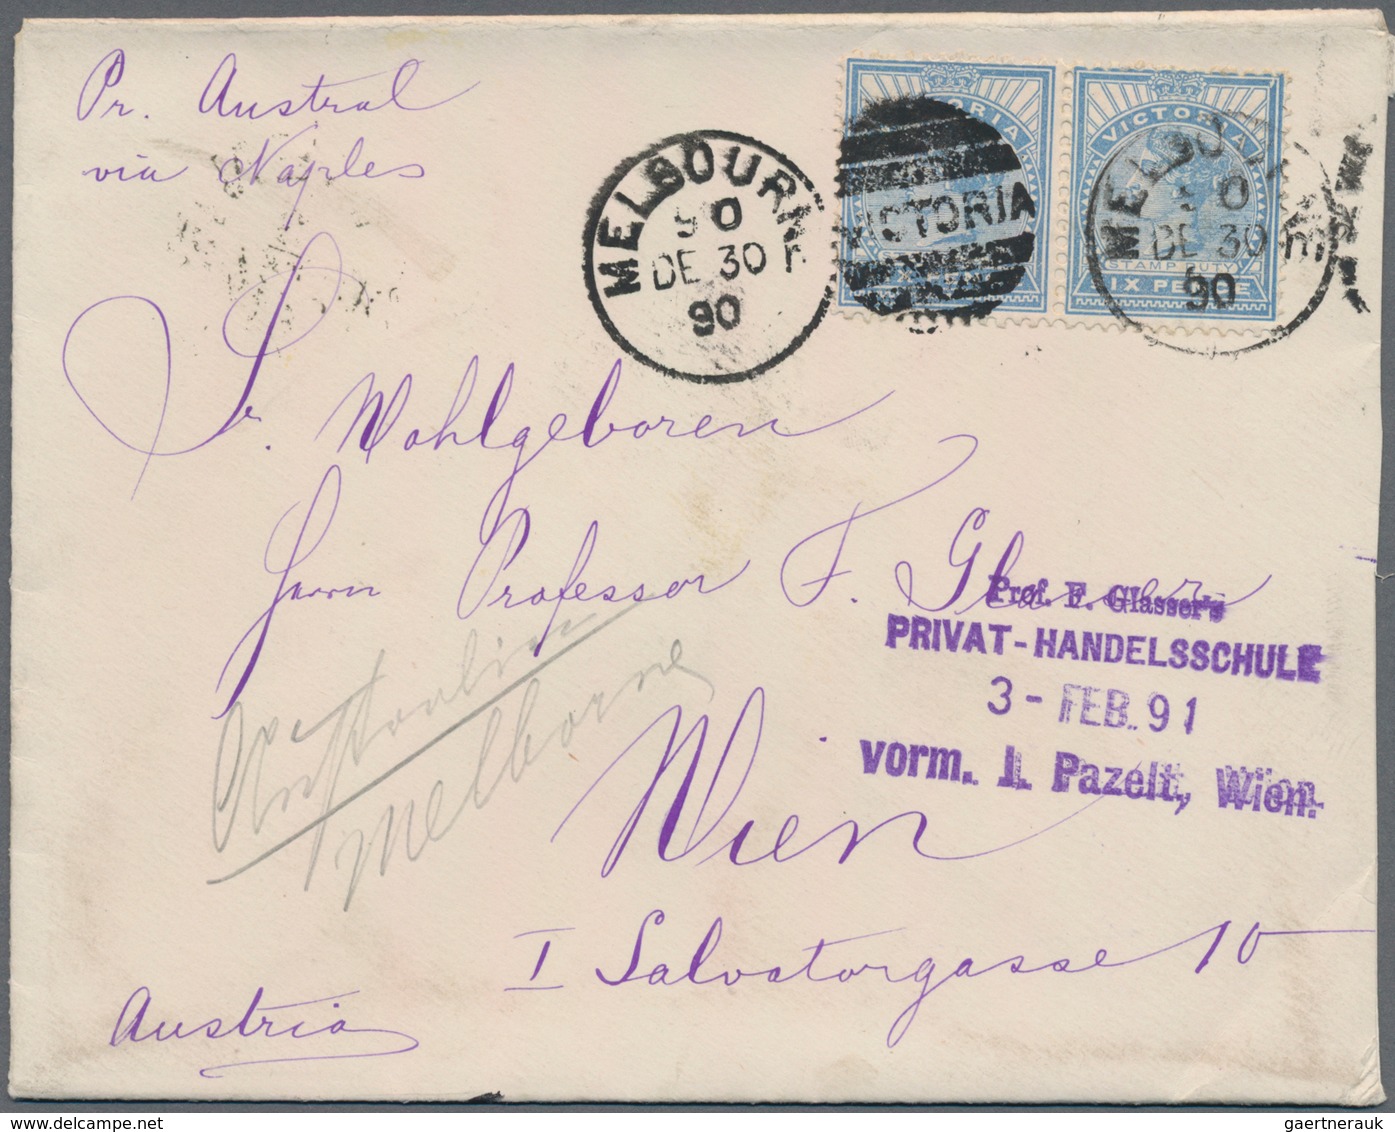 Pr. Austral
via Naples
MELBOURNE
90
DE 30 P
90
VICTORIA
VICTORIA
STAMP DUTY
SIX PENCE
MELBOURNE
DE 30
90
Sr. Wohlgeboren
Herrn Professor F. Glasser
Prof. F. Glasser's
PRIVAT-HANDELSSCHULE
3 - FEB. 91
vorm. I. Pazelt, Wien.
Australien
Melborne
Wien
I Salvatorgasse 10
Austria
gaertnerauk @ delcampe.net